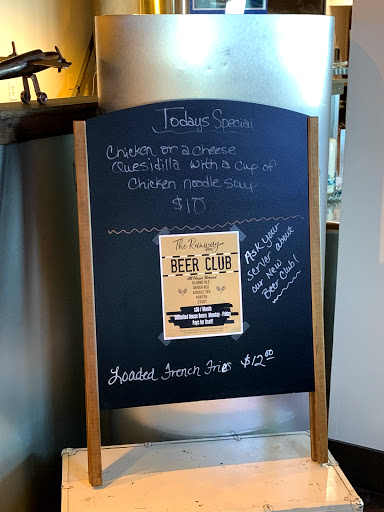 Todays Special
Chicken or a cheese
Quesidilla with a cup of
Chicken noodle soup
$10
The Runway
BEER CLUB
All House Brewed
BLONDE ALE
AMBER ALE
PADDLE IPA
PORTER
STOUT
$30 / Month
Unlimited House Beers, Monday - Friday
Pays for Itself!
Ask your
server about
our New
Beer Club!
Loaded French Fries $12.00